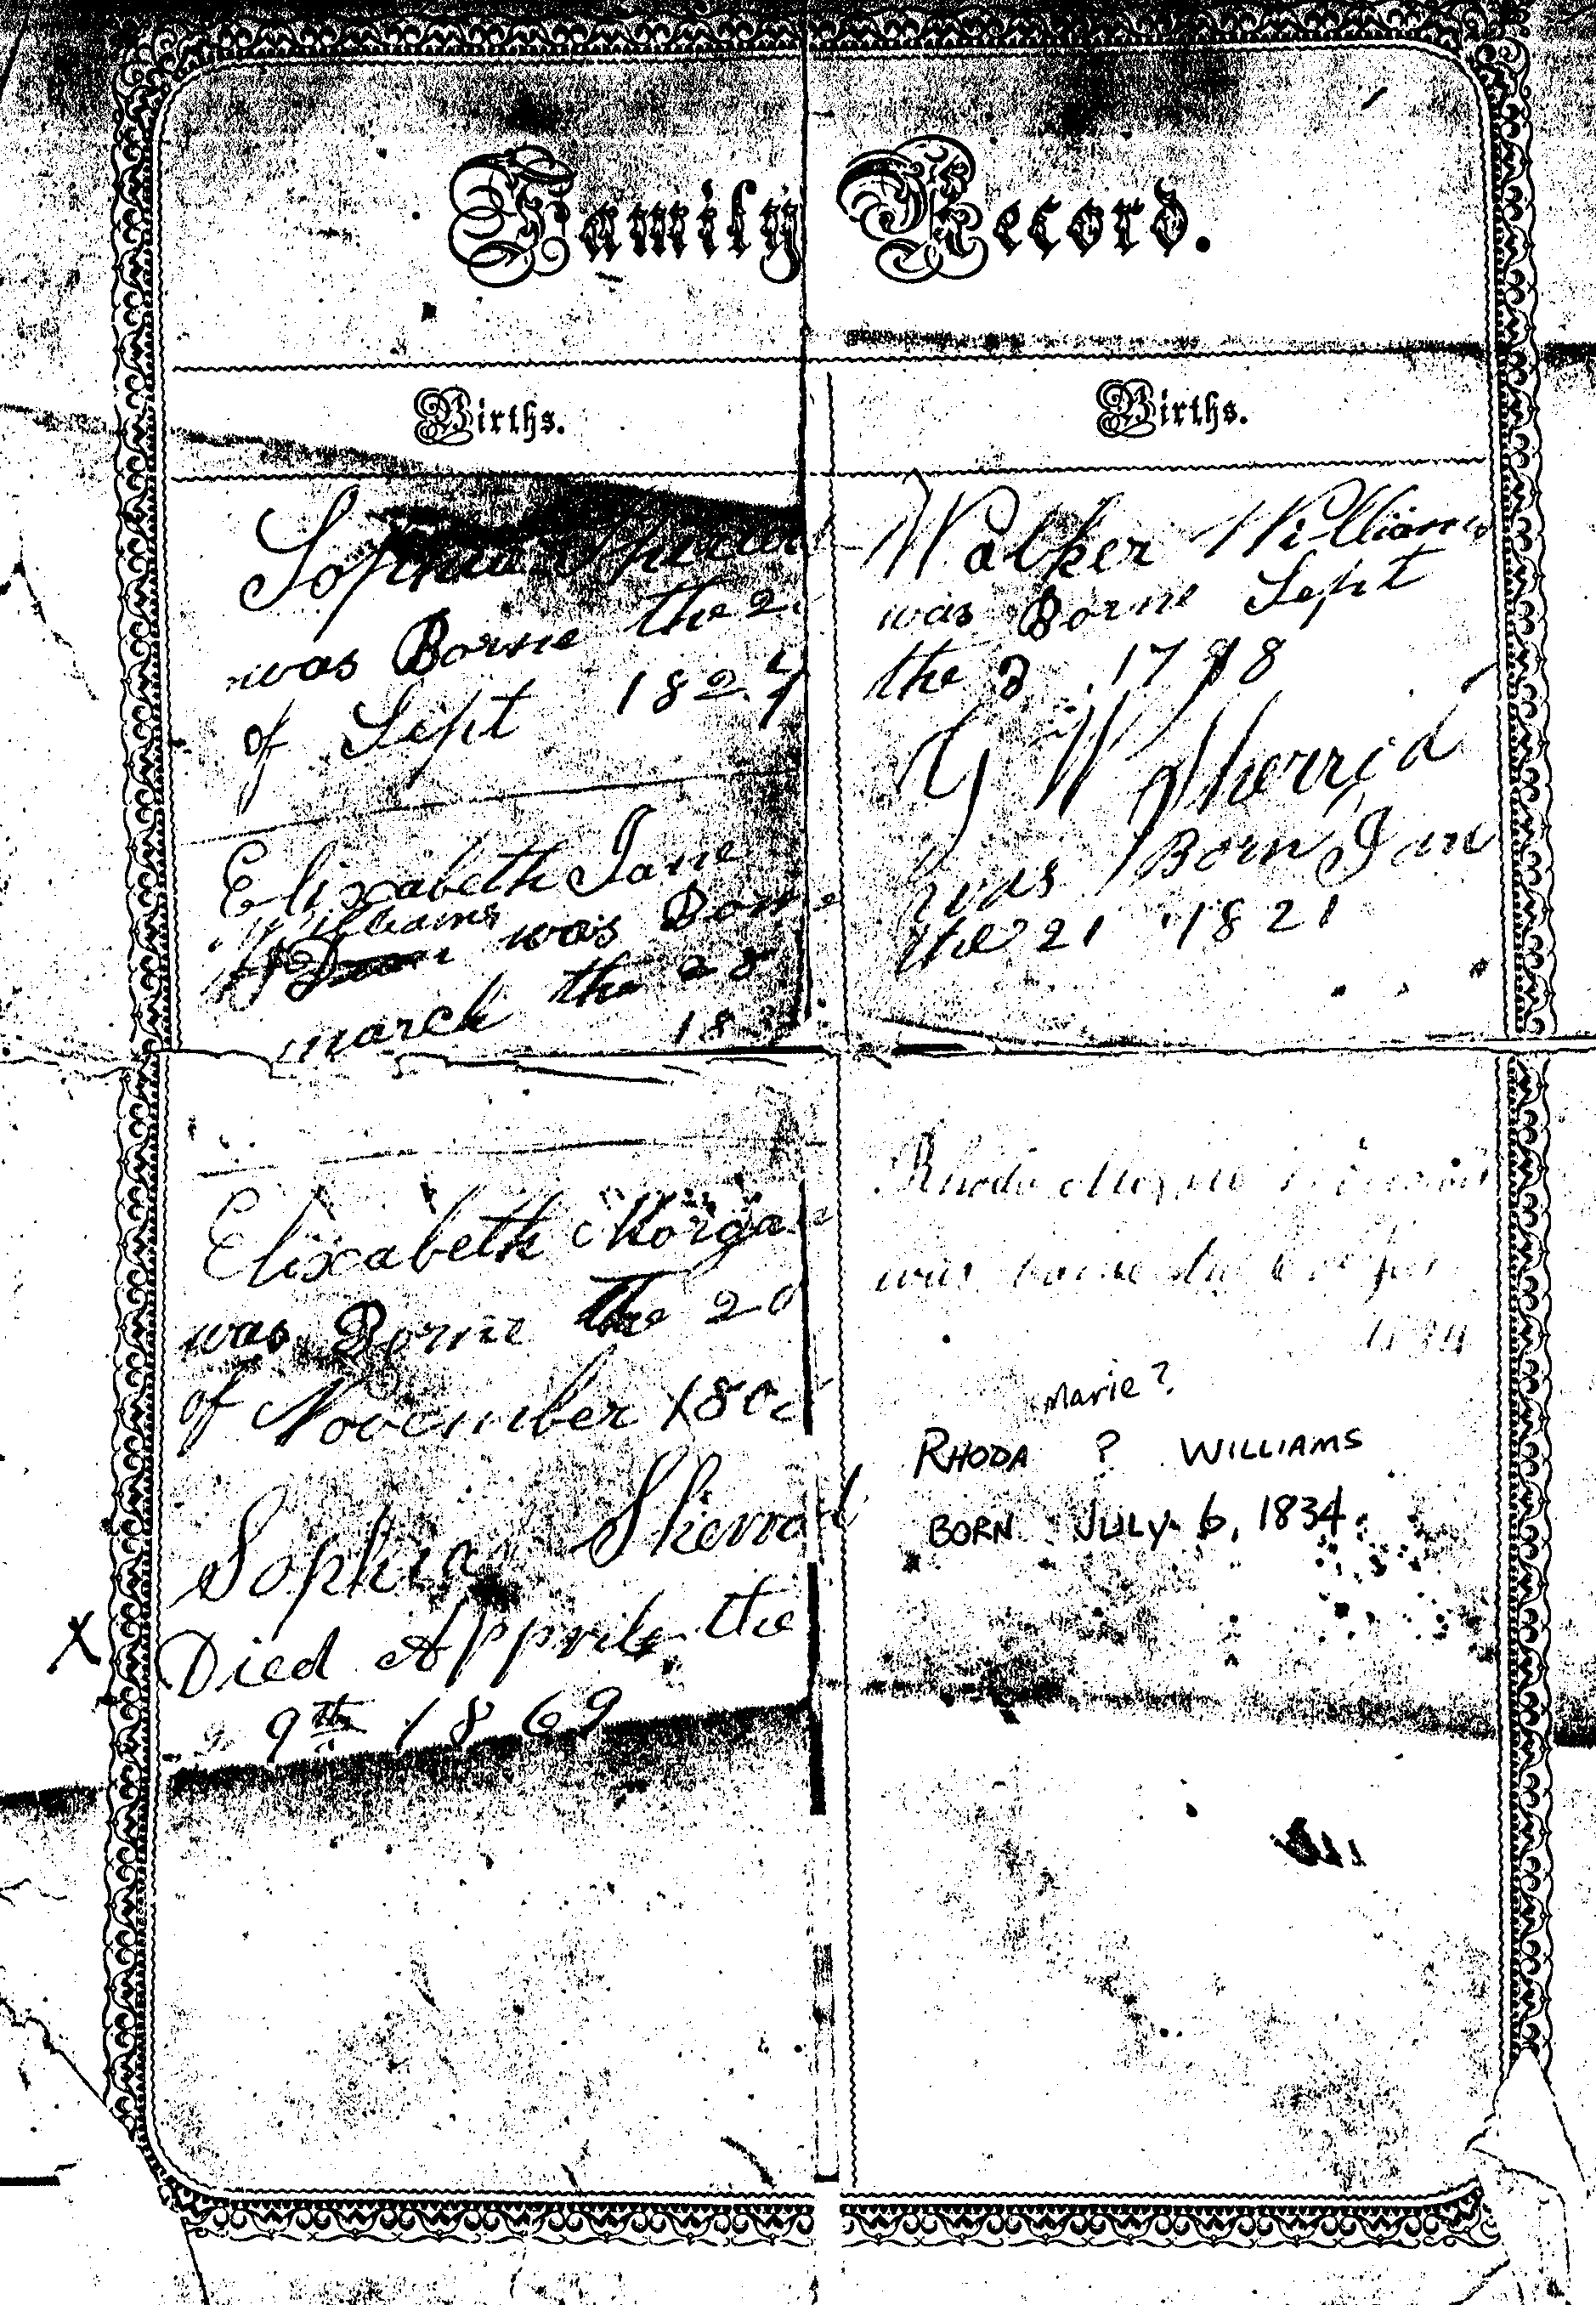 Family Record.
Births.
Sophia
was Borne the 2
of Sept 1824
Elizabeth Jane
Williams
was Borne
march the 28
18
Elizabeth Morgan
was Borne The 20
of November 180
Sophia Sherrod
Died Apprile the
9th 1869
X
Births.
Walker Williams
was Borne Sept
the 3 1798
G W Sherrid
was Born Jan
the 21 1821
Rhoda
was borne the
1834
Marie?
RHODA ? WILLIAMS
BORN JULY 6, 1834